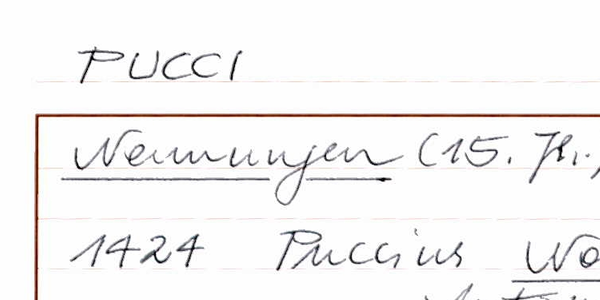 PUCCI
Nennungen (15. Jh.,
1424 Puccius